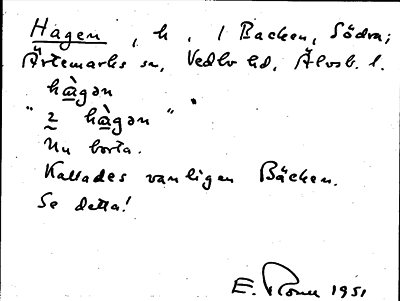 Hagen, h, 1 Backen, Södra;
Ärtemarks sn, Vedbo hd, Älvsb. l.
hàgən
" 2 hàgən " "
Nu borta.
Kallades vanligen Bäcken.
Se detta!
E. 1951